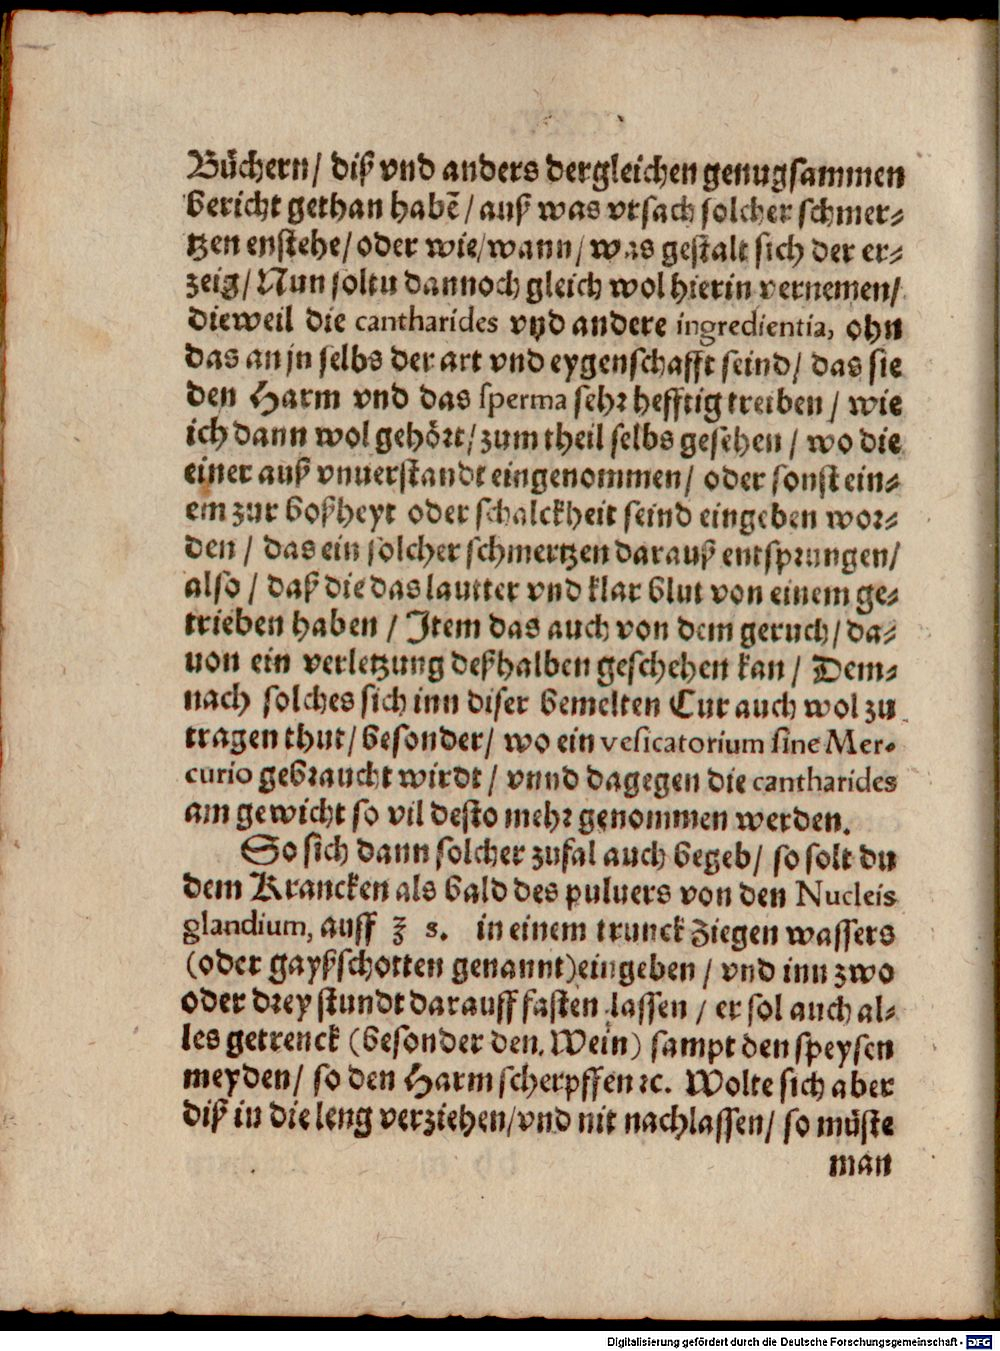 Bůchern/ diß vnd anders dergleichen genugsammen
bericht gethan habē/ auß was vrsach solcher schmer⸗
tzen enstehe/ oder wie/wann/ was gestalt sich der er⸗
zeig/ Nun soltu dannoch gleich wol hierin vernemen/
dieweil die cantharides vnd andere ingredientia, ohn
das an jn selbs der art vnd eygenschafft seind/ das sie
den Harm vnd das sperma sehr hefftig treiben/ wie
ich dann wol gehört/ zum theil selbs gesehen/ wo die
einer auß vnuerstandt eingenommen/ oder sonst ein⸗
em zur boßheyt oder schalckheit seind eingeben wor⸗
den/ das ein solcher schmertzen darauß entsprungen/
also/ daß die das lautter vnd klar blut von einem ge⸗
trieben haben/ Item das auch von dem geruch/ da⸗
uon ein verletzung deßhalben geschehen kan/ Dem⸗
nach solches sich inn diser bemelten Cur auch wol zu
tragen thut/ besonder/ wo ein vesicatorium sine Mer⸗
curio gebraucht wirdt/ vnnd dagegen die cantharides
am gewicht so vil desto mehr genommen werden.
So sich dann solcher zufal auch begeb/ so solt du
dem Krancken als bald des puluers von den Nucleis
glandium, auff ʒ s. in einem trunck Ziegen wassers
(oder gayßschotten genannt)eingeben/ vnd inn zwo
oder drey stundt darauff fasten lassen/ er sol auch al⸗
les getrenck (besonder den Wein) sampt den speysen
meyden/ so den Harm scherpffen ꝛc. Wolte sich aber
diß in die leng verziehen/vnd nit nachlassen/ so müste
man
Digitalisierung gefördert durch die Deutsche Forschungsgemeinschaft - DFG